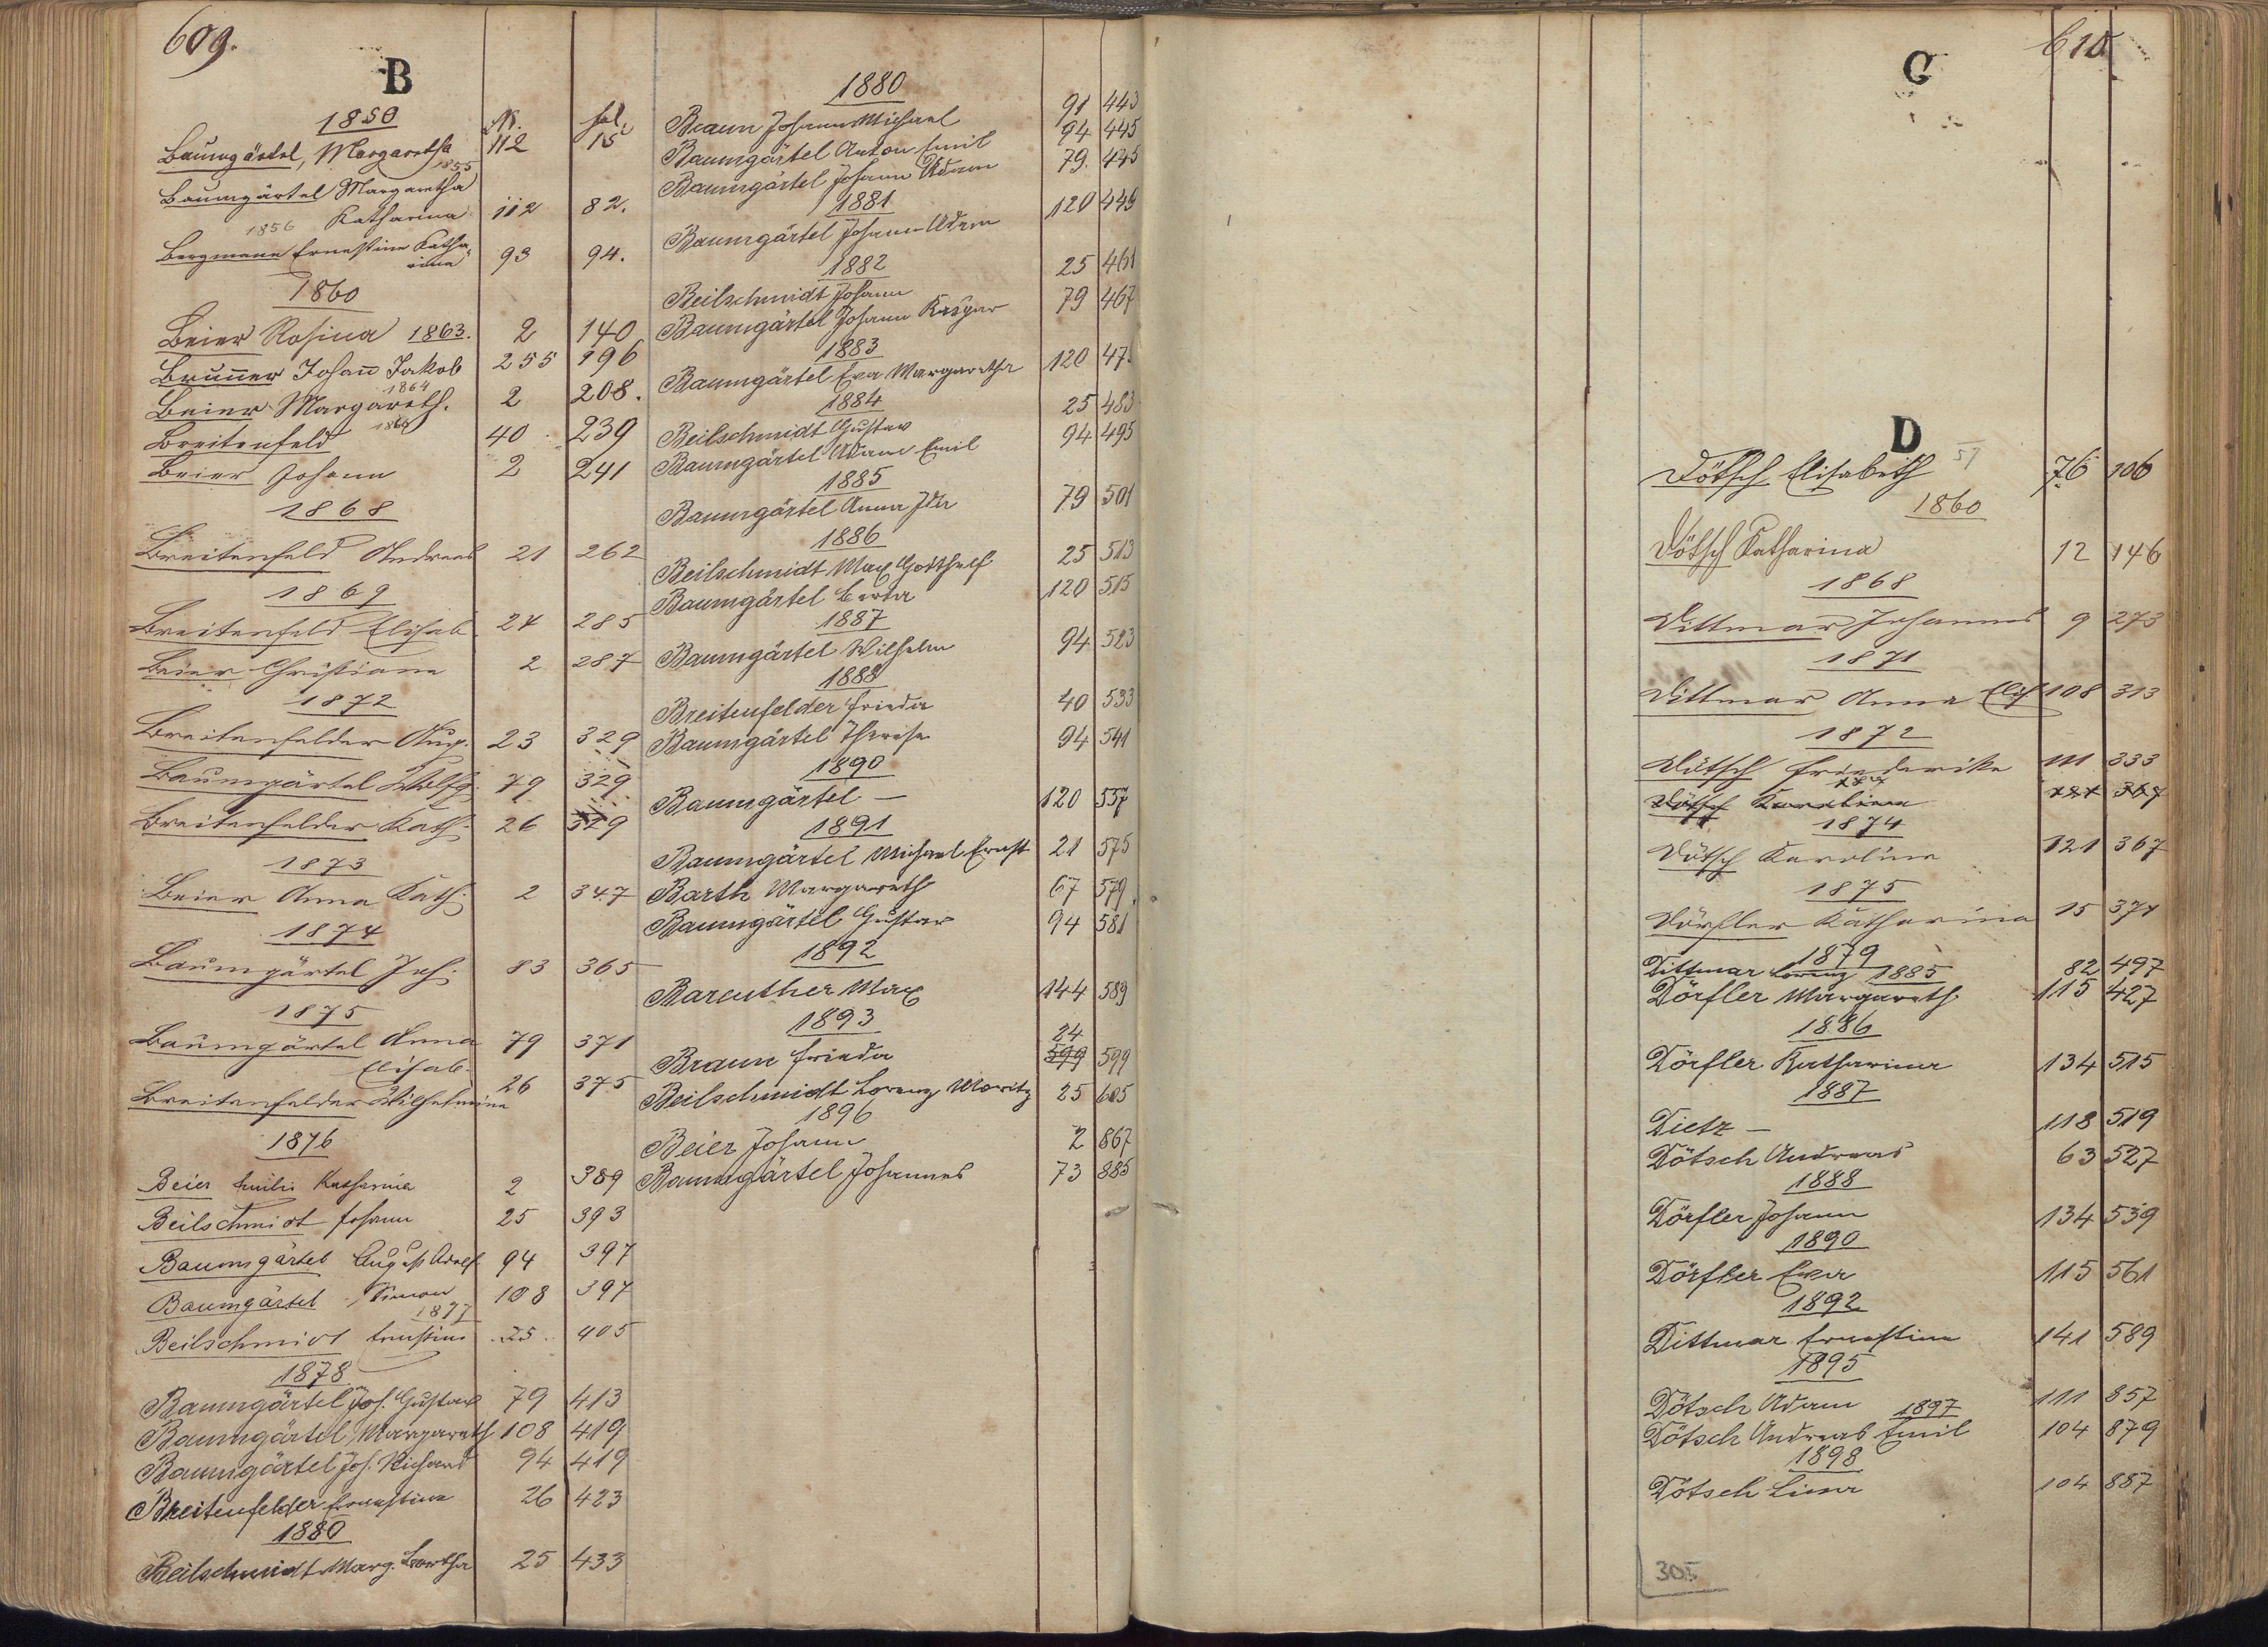 609.
B
1850
N. fol.
Baumgärtel, Margaretha 112 15
1855
Baumgärtel Margaretha
Katharina 112 82.
1856
Bergmann Ernestine Katha-
rina 93 94.
1860
Beier Rosina 1863. 2 140
Brunner Johan̄ Jakob 255 196
1864
Beier Margareth. 2 208.
Breitenfeld 40 239
Beier Johann 2 241
1868
Breitenfeld Andreas 21 262
1869
Breitenfeld Elisab. 24 285
Beier Christiane 2 287
1872
Breitenfelder Aug. 23 329
Baumgärtel Wolfg. 79 329
Breitenfelder Kath. 26 329
1873
Beier Anna Kath. 2 347
1874
Baumgärtel Joh. 83 365
1875
Baumgärtel Anna 79 371
Elisab.
Breitenfelder Wilhelmine 26 375
1876
Beier Emilie Katharina 2 389
Beilschmidt Johann 25 393
Baumgärtel August Adolf 94 397
Baumgärtel Simon 108 397
1877
Beilschmidt Ernstine 25 405
1878
Baumgärtel Joh. Gustav 79 413
Baumgärtel Margareth 108 419
Baumgärtel Joh. Richard 94 419
Breitenfelder Ernestine 26 423
1880
Beilschmidt Marg. Bertha 25 433
1880
Braun Johann Michael 91 443
Baumgärtel Anton Emil 94 445
Baumgärtel Johann Adam 79. 445
1881
Baumgärtel Johann Adam 120 449
1882
Beilschmidt Johann 25 461
Baumgärtel Johann Kaspar 79 467
1883
Baumgärtel Eva Margaretha 120 47
1884
Beilschmidt Gustav 25 483
Baumgärtel Adam Emil 94 495
1885
Baumgärtel Anna Ida 79 501
1886
Beilschmidt Max Gotthelf 25 513
Baumgärtel Berta 120 515
1887
Baumgärtel Wilhelm 94 523
1888
Breitenfelder Frieda 40 533
Baumgärtel Therese 94 541
1890
Baumgärtel — 120 557
1891
Baumgärtel Michael Ernst 21 575
Barth Margareth 67 579
Baumgärtel Gustav 94 581
1892
Bareuther Max 144 589
1893
24
Braun Frieda 599 599
Beilschmidt Lorenz Moritz 25 605
1896
Beier Johann 2 867
Baumgärtel Johannes 73 885
610
C
D
Dötsch Elisabeth 57 76 106
1860
Dötsch Katharina 12 146
1868
Dittmar Johannes 9 273
1871
Dittmar Anna Elis 108 313
1872
Dötsch Friederike 111 333
Dötsch Karoline 121 367
1874
Dötsch Karoline 121 367
1875
Dörfler Katharina 15 371
1879
Dittmar Lorenz 1885 82 497
Dörfler Margareth 115 427
1886
Dörfler Katharina 134 515
1887
Dietz — 118 519
Dötsch Andreas 63 527
1888
Dörfler Johann 134 539
1890
Dörfler Eva 115 561
1892
Dittmar Ernestine 141 589
1895
Dötsch Adam 111 857
1897
Dötsch Andreas Emil 104 879
1898
Dötsch Lina 104 887
305